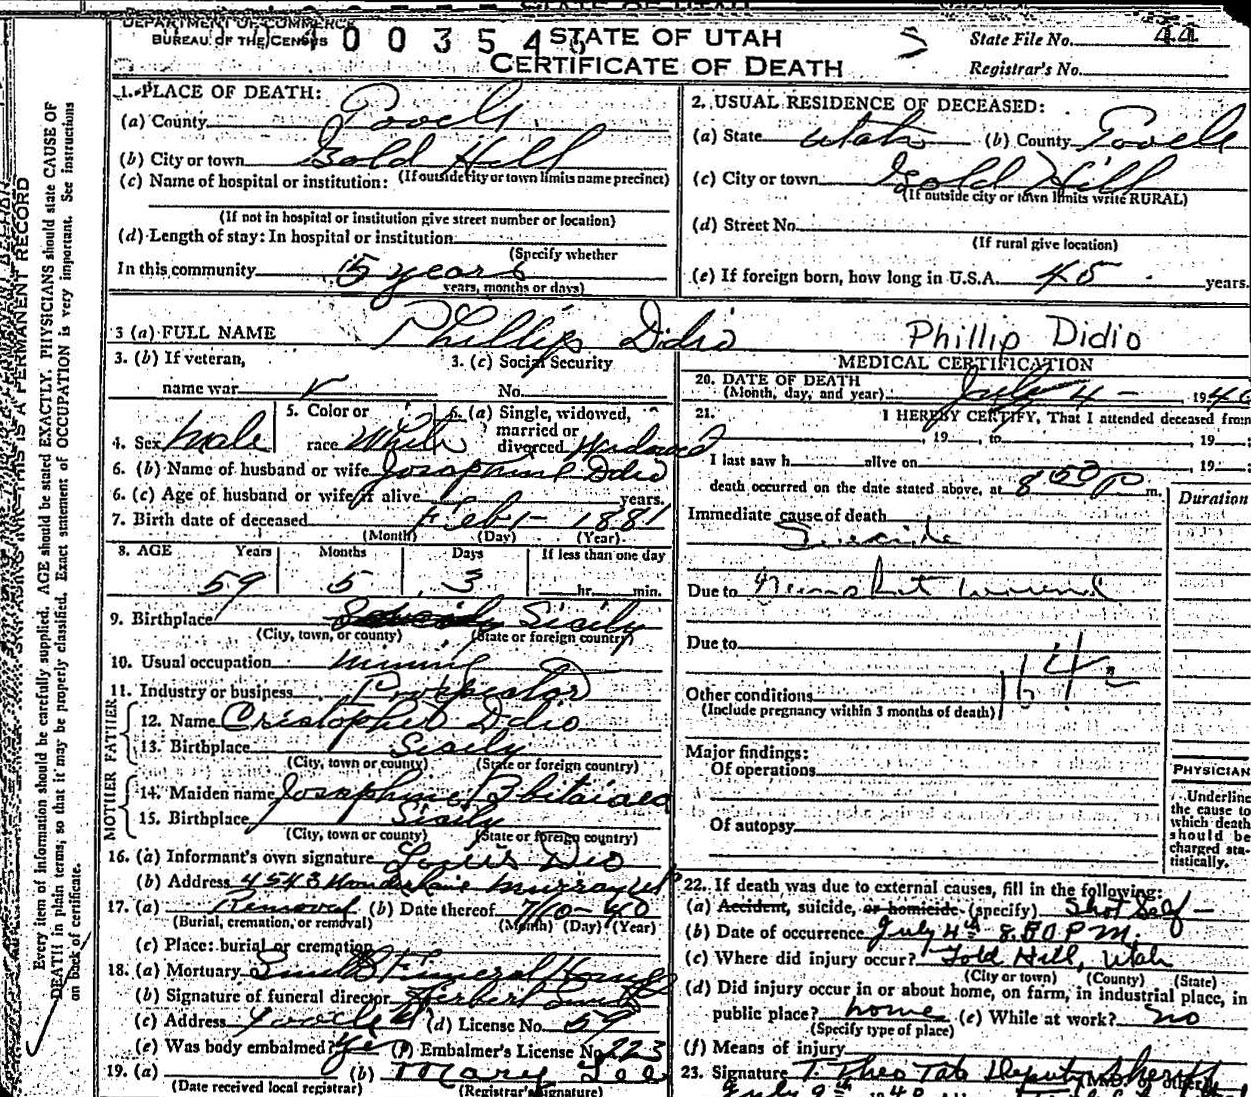 STATE OF UTAH
DEPARTMENT OF COMMERCE
BUREAU OF THE CENSUS
STATE OF UTAH
CERTIFICATE OF DEATH
State File No. 44
Registrar's No.
Every item of information should be carefully supplied. AGE should be stated EXACTLY. PHYSICIANS should state CAUSE OF
DEATH in plain terms, so that it may be properly classified. Exact statement of OCCUPATION is very important. See instructions
on back of certificate.
THIS IS A PERMANENT RECORD
1. PLACE OF DEATH:
(a) County Tooele
(b) City or town Gold Hill
(If outside city or town limits name precinct)
(c) Name of hospital or institution:
(If not in hospital or institution give street number or location)
(d) Length of stay: In hospital or institution
(Specify whether
In this community 15 years
years, months or days)
2. USUAL RESIDENCE OF DECEASED:
(a) State Utah (b) County Tooele
(c) City or town Gold Hill
(If outside city or town limits write RURAL)
(d) Street No.
(If rural give location)
(e) If foreign born, how long in U.S.A. 45 years.
3 (a) FULL NAME Phillip Didio Phillip Didio
3. (b) If veteran, name war
3. (c) Social Security No.
4. Sex Male
5. Color or race White
6. (a) Single, widowed, married or divorced Widowed
6. (b) Name of husband or wife Josephine Ddio
6. (c) Age of husband or wife if alive years.
7. Birth date of deceased Feb 1 - 1881
(Month) (Day) (Year)
8. AGE Years Months Days If less than one day
59 5 3 hr. min.
9. Birthplace Sicily
(City, town, or county) (State or foreign country)
10. Usual occupation mining
11. Industry or business Prospector
FATHER
12. Name Cristopher Ddio
13. Birthplace Sicily
(City, town or county) (State or foreign country)
MOTHER
14. Maiden name Josephine
15. Birthplace Sicily
(City, town or county) (State or foreign country)
16. (a) Informant's own signature Louis Dio
(b) Address 4543 Murray Ut
17. (a) Removal (b) Date thereof 7/10-40
(Burial, cremation, or removal) (Month) (Day) (Year)
(c) Place: burial or cremation
18. (a) Mortuary Smith Funeral Home
(b) Signature of funeral director Herbert Smith
(c) Address Tooele (d) License No. 59
(e) Was body embalmed? Yes (f) Embalmer's License No. 223
19. (a) (b) Mary Lee
(Date received local registrar) (Registrar's signature)
MEDICAL CERTIFICATION
20. DATE OF DEATH
(Month, day, and year) July 4 - , 1940
21. I HEREBY CERTIFY, That I attended deceased from
, 19 , to , 19
I last saw h alive on , 19
death occurred on the date stated above, at 8 00 P m.
Duration
Immediate cause of death
Suicide
Due to Gunshot wound
Due to
164
Other conditions
(Include pregnancy within 3 months of death)
Major findings:
Of operations
Of autopsy
PHYSICIAN
Underline
the cause to
which death
should be
charged sta-
tistically.
22. If death was due to external causes, fill in the following:
(a) Accident, suicide, or homicide (specify) Shot Self -
(b) Date of occurrence July 4th 8:00 P.M.
(c) Where did injury occur? Gold Hill, Utah
(City or town) (County) (State)
(d) Did injury occur in or about home, on farm, in industrial place, in
public place? home (e) While at work? no
(Specify type of place)
(f) Means of injury
23. Signature Deputy Sheriff
(M.D. or other)